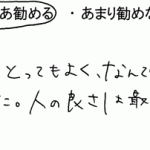 あ勧める ・あまり勧めな
とってもよく、なんて
に。人の良さは最